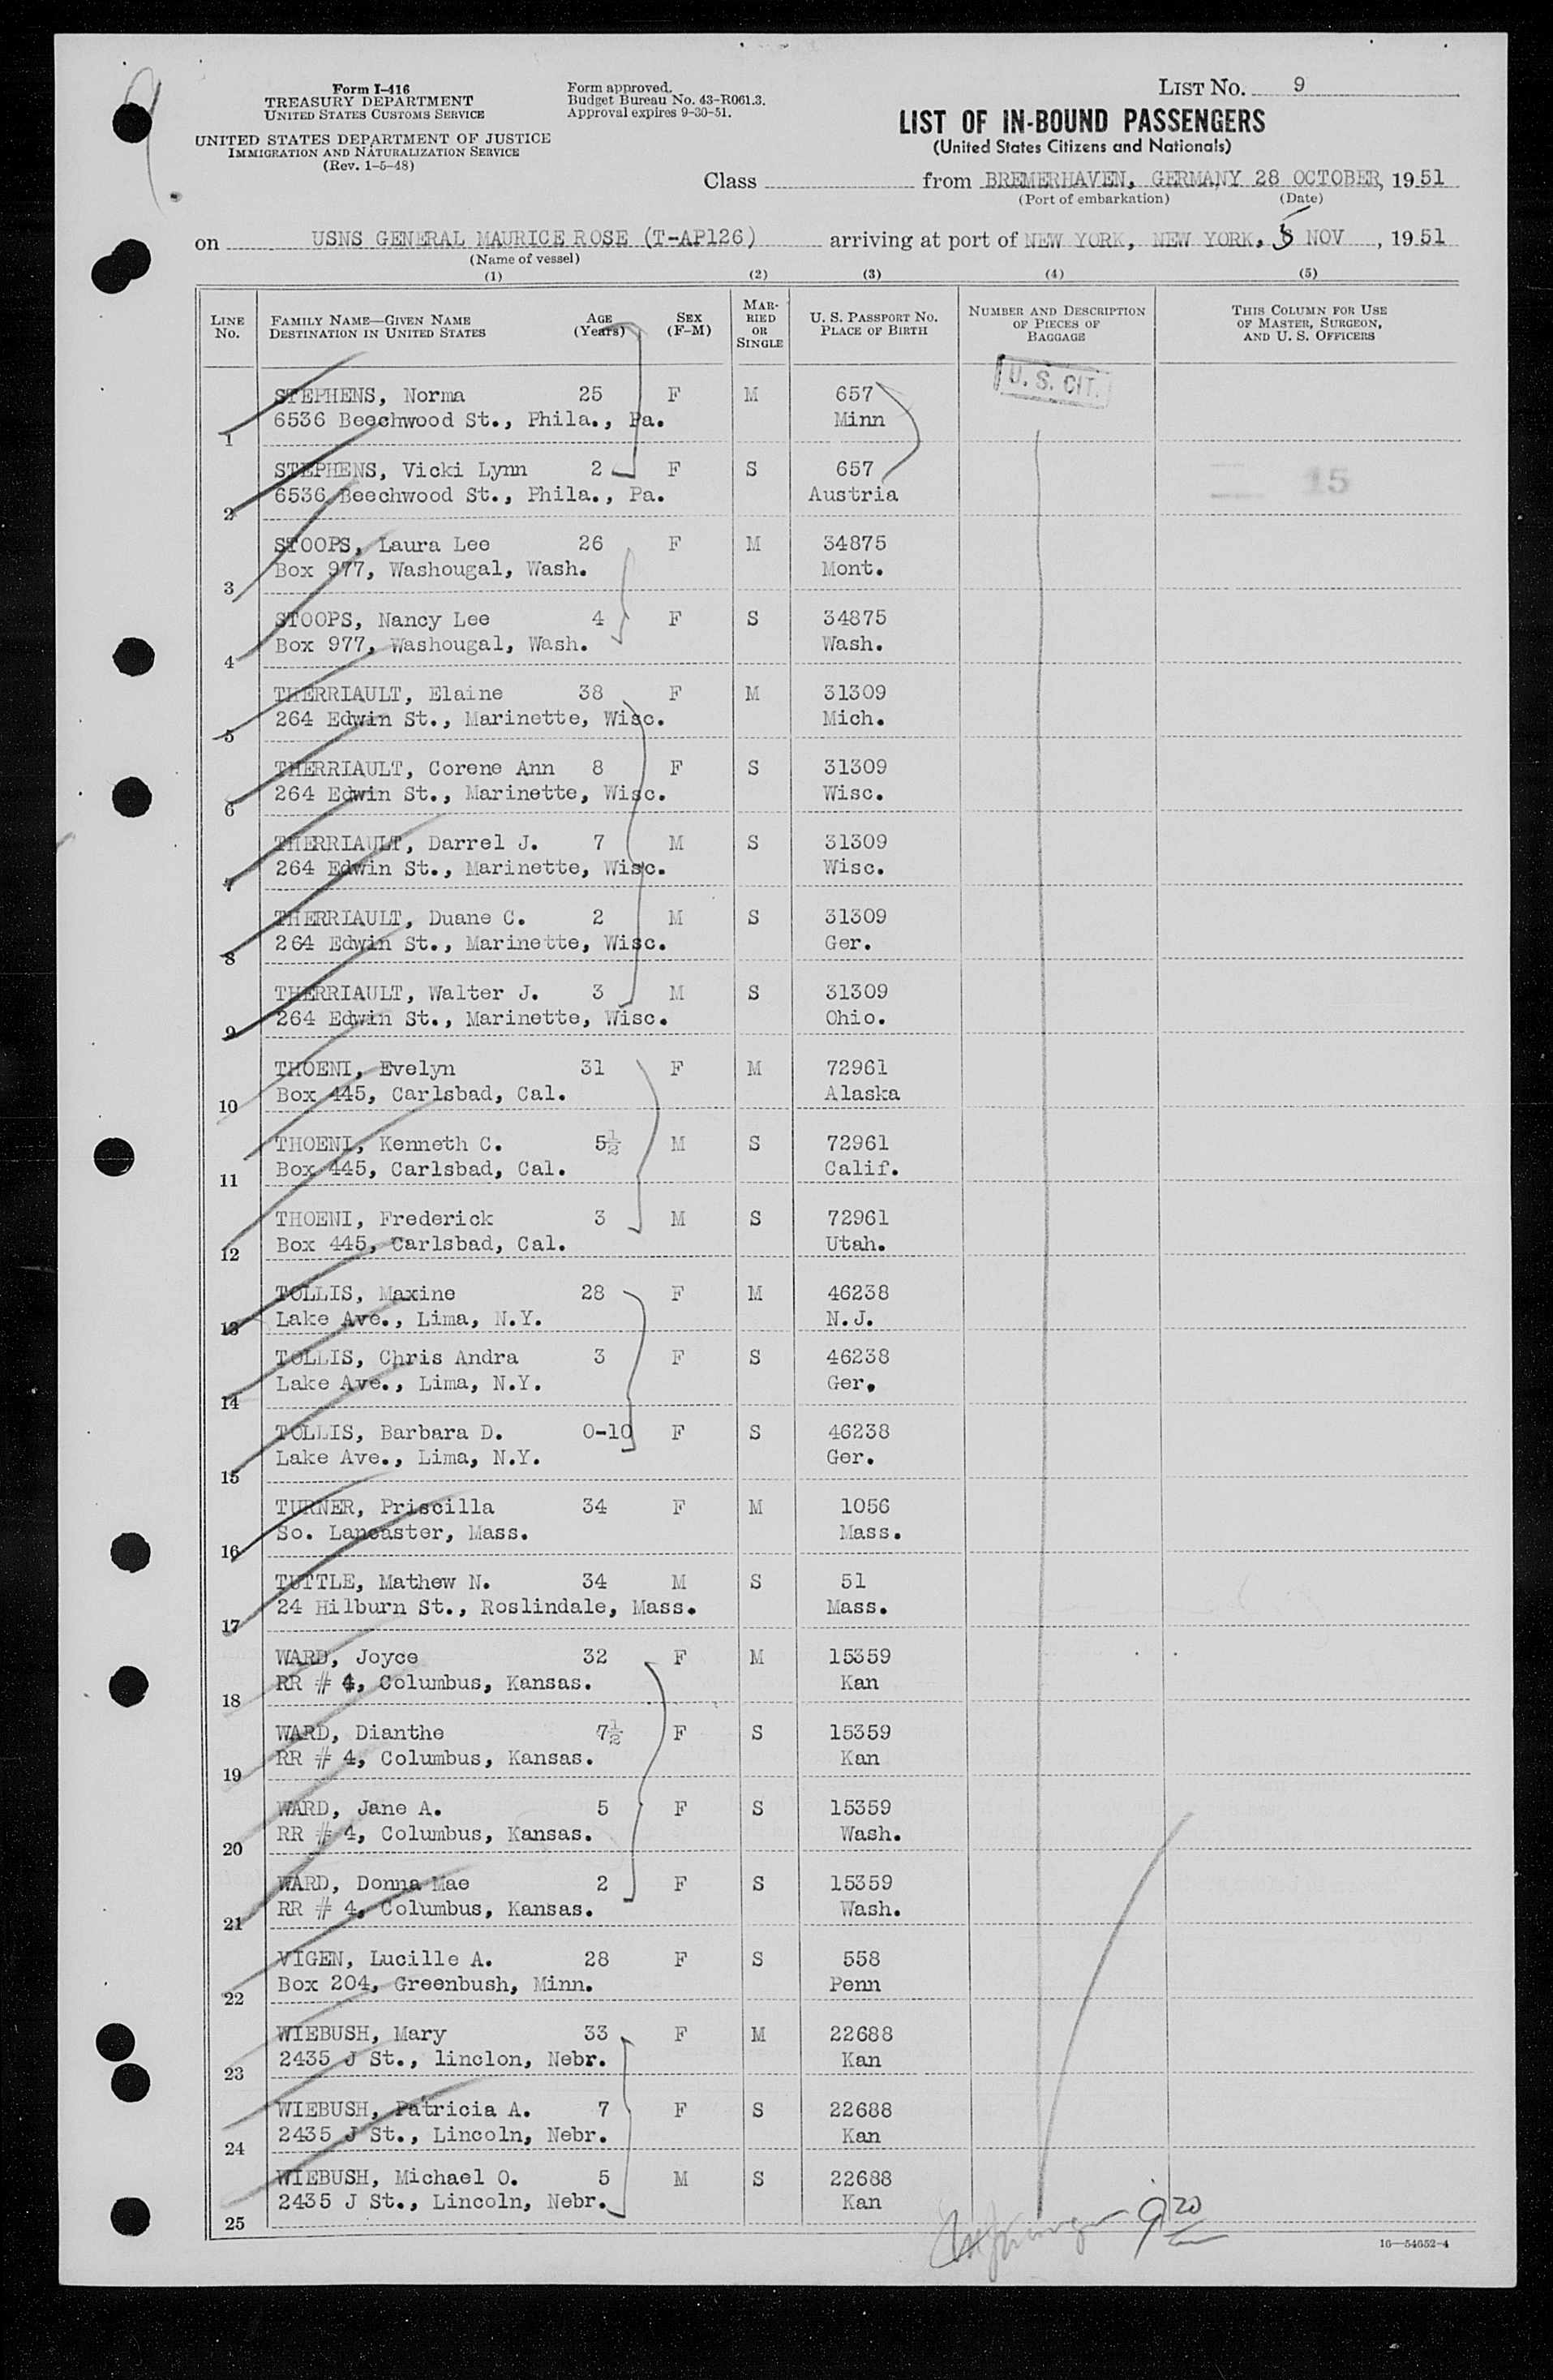 LIST No. 9
Form I-416
TREASURY DEPARTMENT
UNITED STATES CUSTOMS SERVICE
UNITED STATES DEPARTMENT OF JUSTICE
IMMIGRATION AND NATURALIZATION SERVICE
(Rev. 1-5-48)
Form approved.
Budget Bureau No. 43-R061.3.
Approval expires 9-30-51.
LIST OF IN-BOUND PASSENGERS
(United States Citizens and Nationals)
Class from BREMERHAVEN, GERMANY 28 OCTOBER, 1951
(Port of embarkation) (Date)
on USNS GENERAL MAURICE ROSE (T-AP126) arriving at port of NEW YORK, NEW YORK, NOV, 1951
(Name of vessel)
(1) (2) (3) (4) (5)
LINE No. FAMILY NAME—GIVEN NAME DESTINATION IN UNITED STATES AGE (Years) SEX (F-M) MARRIED OR SINGLE U. S. PASSPORT NO. PLACE OF BIRTH NUMBER AND DESCRIPTION OF PIECES OF BAGGAGE THIS COLUMN FOR USE OF MASTER, SURGEON, AND U. S. OFFICERS
U. S. CIT.
STEPHENS, Norma 25 F M 657
1 6536 Beechwood St., Phila., Pa. Minn
STEPHENS, Vicki Lynn 2 F S 657
15
2 6536 Beechwood St., Phila., Pa. Austria
STOOPS, Laura Lee 26 F M 34875
3 Box 977, Washougal, Wash. Mont.
STOOPS, Nancy Lee 4 F S 34875
4 Box 977, Washougal, Wash. Wash.
THERRIAULT, Elaine 38 F M 31309
5 264 Edwin St., Marinette, Wisc. Mich.
THERRIAULT, Corene Ann 8 F S 31309
6 264 Edwin St., Marinette, Wisc. Wisc.
THERRIAULT, Darrel J. 7 M S 31309
7 264 Edwin St., Marinette, Wisc. Wisc.
THERRIAULT, Duane C. 2 M S 31309
8 264 Edwin St., Marinette, Wisc. Ger.
THERRIAULT, Walter J. 3 M S 31309
9 264 Edwin St., Marinette, Wisc. Ohio.
THOENI, Evelyn 31 F M 72961
10 Box 445, Carlsbad, Cal. Alaska
THOENI, Kenneth C. 5½ M S 72961
11 Box 445, Carlsbad, Cal. Calif.
THOENI, Frederick 3 M S 72961
12 Box 445, Carlsbad, Cal. Utah.
TOLLIS, Maxine 28 F M 46238
13 Lake Ave., Lima, N.Y. N.J.
TOLLIS, Chris Andra 3 F S 46238
14 Lake Ave., Lima, N.Y. Ger.
TOLLIS, Barbara D. 0-10 F S 46238
15 Lake Ave., Lima, N.Y. Ger.
TURNER, Priscilla 34 F M 1056
16 So. Lancaster, Mass. Mass.
TUTTLE, Mathew N. 34 M S 51
17 24 Hilburn St., Roslindale, Mass. Mass.
WARD, Joyce 32 F M 15359
18 RR # 4, Columbus, Kansas. Kan
WARD, Dianthe 7½ F S 15359
19 RR # 4, Columbus, Kansas. Kan
WARD, Jane A. 5 F S 15359
20 RR # 4, Columbus, Kansas. Wash.
WARD, Donna Mae 2 F S 15359
21 RR # 4, Columbus, Kansas. Wash.
VIGEN, Lucille A. 28 F S 558
22 Box 204, Greenbush, Minn. Penn
WIEBUSH, Mary 33 F M 22688
23 2435 J St., linclon, Nebr. Kan
WIEBUSH, Patricia A. 7 F S 22688
24 2435 J St., Lincoln, Nebr. Kan
WIEBUSH, Michael O. 5 M S 22688
25 2435 J St., Lincoln, Nebr. Kan
16—54652-4